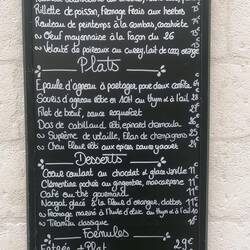 Rillette de poisson, fromage frais aux herbes
Rouleau de printemps à la gambas, cacahuète
Oeuf mayonnaise à la façon du 26
Velouté de poireaux au curry, lait de coco, orange
Plats
Epaule d'agneau à partager pour deux confite
Souris d'agneau rôtie au thym et à l'ail
Plat de bœuf, sauce roquefort
Dos de cabillaud rôti, épinard chamoula
Suprême de volaille, flan de champignons
Chou fleur rôti aux épices, sauce yaourt
Desserts
Coque coulant au chocolat et glace vanille 11€
Clémentine pochée au gingembre, mascarpone 11€
Café ou thé gourmand
Nougat glacé à la fleur d'oranger, dattes
Fromage mariné à l'huile d'olive au thym et à l'ail
Tiramisu classique
Formules
Entrée + Plat 29€